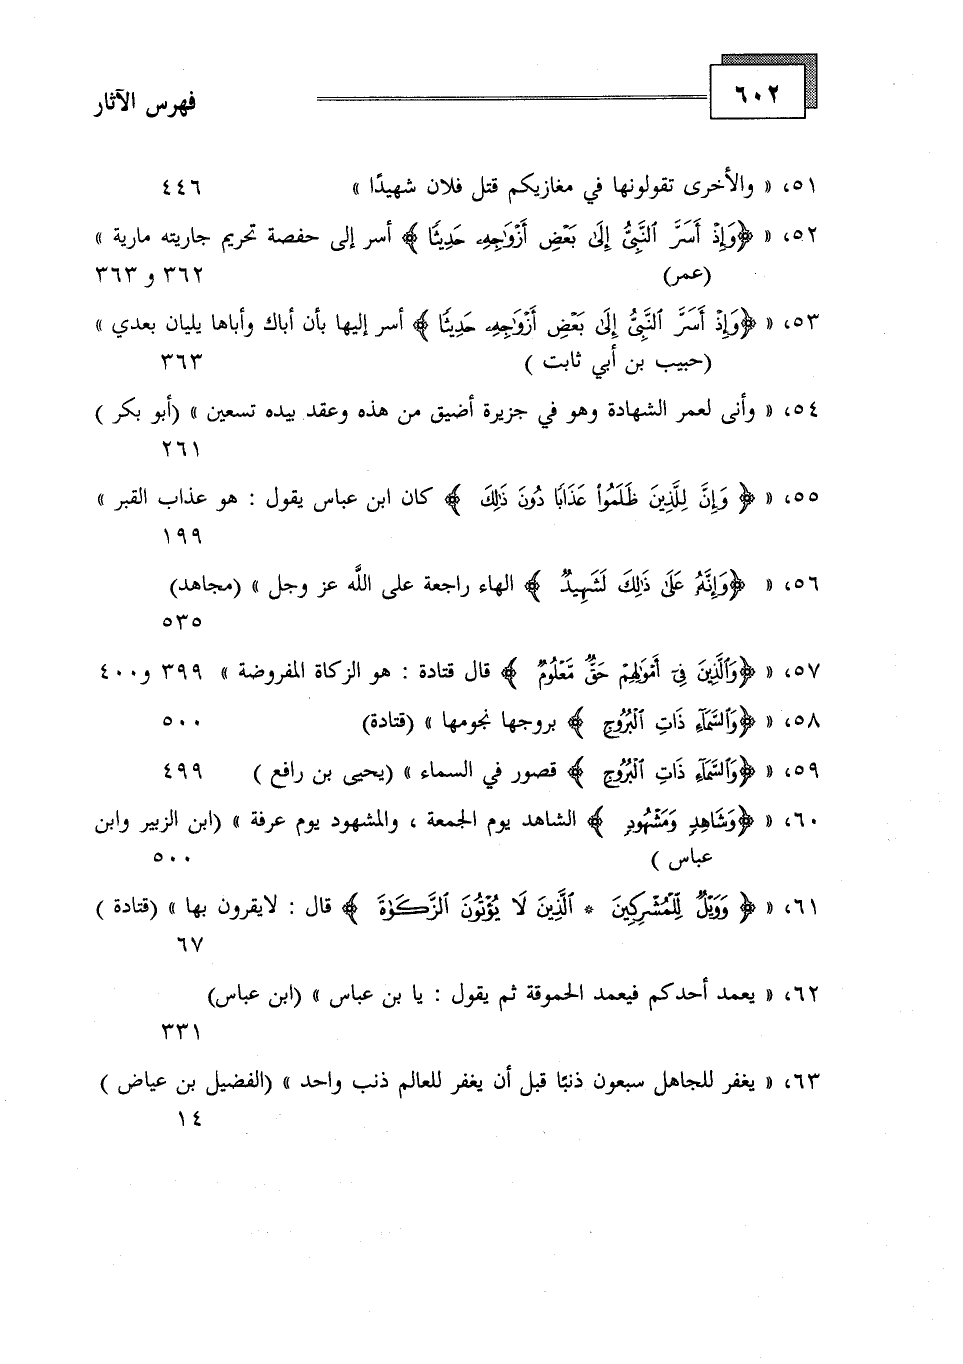 ٦٠٢
فهرس الآثار
٥١، « والأخرى تقولونها في مغازيكم قتل فلان شهيدًا » ٤٤٦
٥٢، « ﴿وَإِذْ أَسَرَّ ٱلنَّبِىُّ إِلَىٰ بَعْضِ أَزْوَٰجِهِۦ حَدِيثًا ﴾ أسر إلى حفصة تحريم جاريته مارية »
(عمر) ٣٦٢ و ٣٦٣
٥٣، « ﴿وَإِذْ أَسَرَّ ٱلنَّبِىُّ إِلَىٰ بَعْضِ أَزْوَٰجِهِۦ حَدِيثًا ﴾ أسر إليها بأن أباك وأباها يليان بعدي »
(حبيب بن أبي ثابت ) ٣٦٣
٥٤، « وأنى لعمر الشهادة وهو في جزيرة أضيق من هذه وعقد بيده تسعين » (أبو بكر )
٢٦١
٥٥، « ﴿ وَإِنَّ لِلَّذِينَ ظَلَمُوا۟ عَذَابًا دُونَ ذَٰلِكَ ﴾ كان ابن عباس يقول : هو عذاب القبر »
١٩٩
٥٦، « ﴿وَإِنَّهُۥ عَلَىٰ ذَٰلِكَ لَشَهِيدٌ ﴾ الهاء راجعة على اللَّه عز وجل » (مجاهد)
٥٣٥
٥٧، « ﴿وَٱلَّذِينَ فِىٓ أَمْوَٰلِهِمْ حَقٌّ مَّعْلُومٌ ﴾ قال قتادة : هو الزكاة المفروضة » ٣٩٩ و٤٠٠
٥٨، « ﴿وَٱلسَّمَآءِ ذَاتِ ٱلْبُرُوجِ ﴾ بروجها نجومها » (قتادة) ٥٠٠
٥٩، « ﴿وَٱلسَّمَآءِ ذَاتِ ٱلْبُرُوجِ ﴾ قصور في السماء » (يحيى بن رافع ) ٤٩٩
٦٠، « ﴿وَشَاهِدٍ وَمَشْهُودٍ ﴾ الشاهد يوم الجمعة ، والمشهود يوم عرفة » (ابن الزبير وابن
عباس ) ٥٠٠
٦١، « ﴿ وَوَيْلٌ لِّلْمُشْرِكِينَ * ٱلَّذِينَ لَا يُؤْتُونَ ٱلزَّكَوٰةَ ﴾ قال : لايقرون بها » (قتادة )
٦٧
٦٢، « يعمد أحدكم فيعمد الحموقة ثم يقول : يا بن عباس » (ابن عباس)
٣٣١
٦٣، « يغفر للجاهل سبعون ذنبًا قبل أن يغفر للعالم ذنب واحد » (الفضيل بن عياض )
١٤